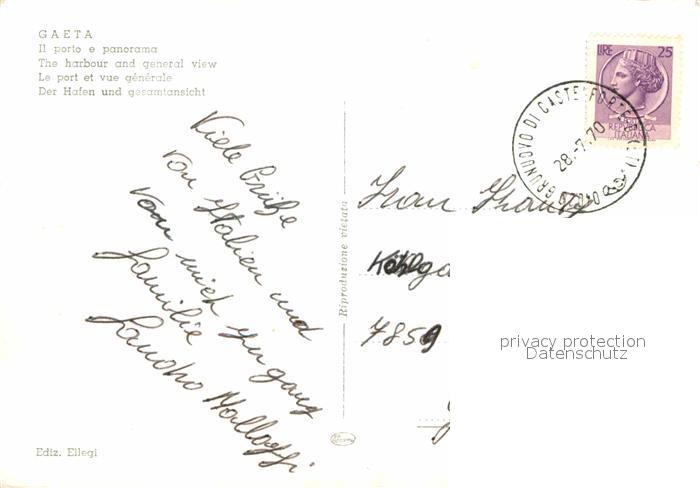 GAETA
Il porto e panorama
The harbour and general view
Le port et vue générale
Der Hafen und gesamtansicht
Viele Grüße
von Italien und
vom mich
Familie
Sancho
Ediz. Ellegi
Riproduzione vietata
LIRE 25
REPUBBLICA
ITALIANA
GRUNUOVO DI CASTELFORTE
28.-7.70
Frau
785
privacy protection
Datenschutz